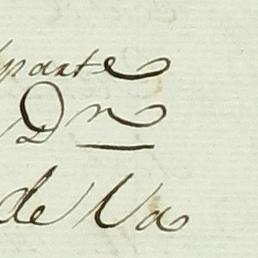 parte
Dn
de Va